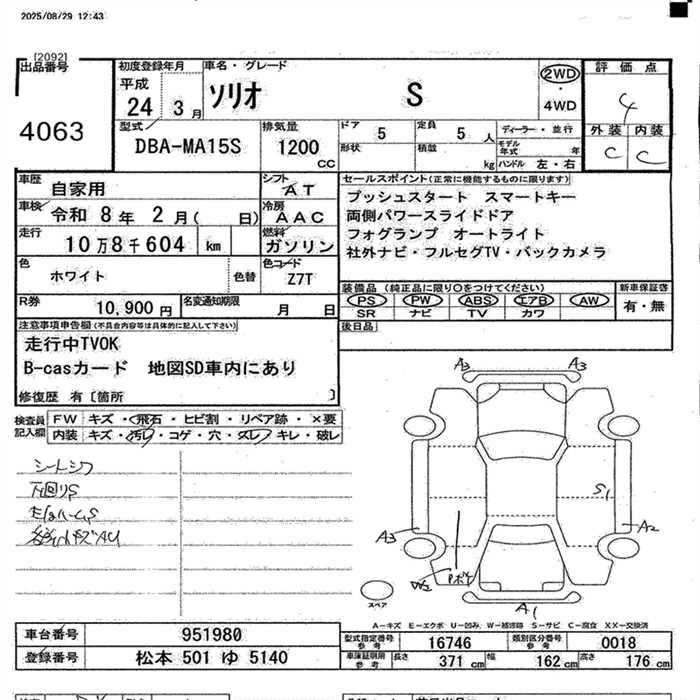 2025/08/29 12:43
[2092]
出品番号
4063
初度登録年月
平成
24 3月
車名・グレード
ソリオ S
2WD
・
4WD
評価点
4
外装 内装
C C
型式
DBA-MA15S
排気量
1200 cc
ドア 5
定員 5 人
形状
積載 kg
ディーラー・並行
モデル年式 年
ハンドル 左・右
車歴
自家用
シフト
AT
車検 令和 8年 2月( 日)
冷房
AAC
走行
10万8千604 km
燃料
ガソリン
色
ホワイト
色替
色コード
Z7T
R券
10,900円
名変通知期限
月 日
セールスポイント(正常に機能するものに限ります)
プッシュスタート スマートキー
両側パワースライドドア
フォグランプ オートライト
社外ナビ・フルセグTV・バックカメラ
装備品 (純正品に限り○をつけてください)
新車保証書
PS PW ABS エアB AW
SR ナビ TV カワ
有・無
後日品
注意事項申告欄(不具合内容等は具体的に記入して下さい)
走行中TVOK
B-casカード 地図SD車内にあり
修復歴 有〔箇所 〕
検査員記入欄
FW キズ・飛石・ヒビ割・リペア跡・×要
内装 キズ・汚れ・コゲ・穴・スレ・キレ・破レ
シートシワ
下回りS
A3 A3
S1
A3 A2
W2
A1
スペア
A－キズ E－エクボ U－凹み W－補修跡 S－サビ C－腐食 XX－交換済
車台番号 951980
登録番号 松本 501 ゆ 5140
型式指定番号 参考 16746
類別区分番号 参考 0018
車庫証明用 参考 長さ 371 cm 幅 162 cm 高さ 176 cm